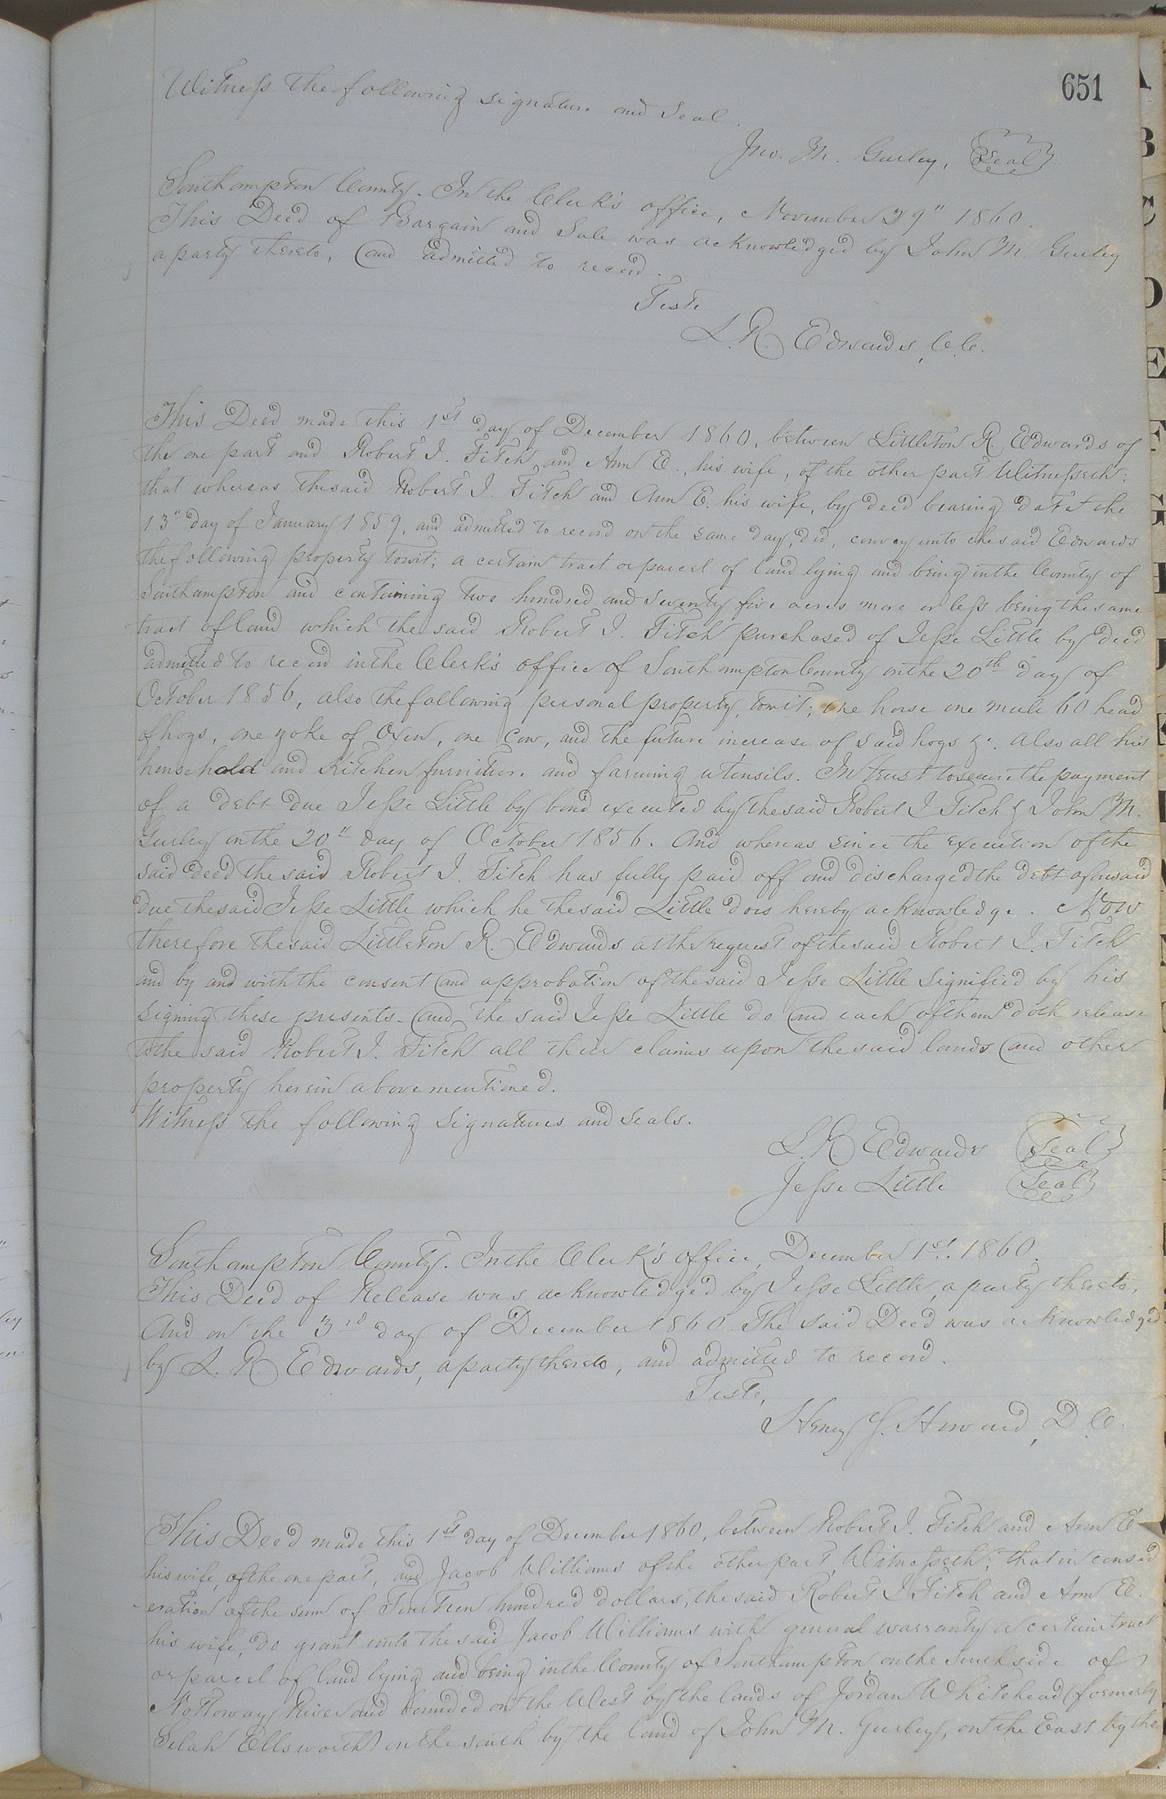 651
Witness the following signature and Seal.
Jno. M. Gurley, Seal
Southampton County. In the Clerk's office, November 29" 1860.
This Deed of Bargain and Sale was acknowledged by John M. Gurley
a party thereto, and admitted to record.
Teste
L. R. Edwards, C.C.
This Deed made this 1st day of December 1860, between Littleton R Edwards of
the one part and Robert J. Fitch and Ann E., his wife, of the other part Witnesseth;
that whereas the said Robert J. Fitch and Ann E. his wife, by deed bearing date the
13" day of January 1859, and admitted to record on the same day, did, convey unto the said Edwards
the following property towit; a certain tract or parcel of land lying and being in the County of
Southampton and containing two hundred and seventy five acres more or less being the same
tract of land which the said Robert J. Fitch purchased of Jesse Little by deed
admitted to record in the Clerk's office of Southampton County on the 20th day of
October 1856, also the following personal property, towit; one horse one mule 60 head
of hogs, one yoke of Oxen, one Cow, and the future increase of said hogs &c. Also all his
household and Kitchen furniture and farming utensils. In trust to secure the payment
of a debt due Jesse Little by bond executed by the said Robert J Fitch & John M.
Gurley on the 20" day of October 1856. And whereas since the execution of the
said deed the said Robert J. Fitch has fully paid off and discharged the debt aforesaid
due the said Jesse Little which he the said Little does hereby acknowledge. Now
therefore the said Littleton R. Edwards at the request of the said Robert J. Fitch
and by and with the consent and approbation of the said Jesse Little signified by his
signing these presents and the said Jesse Little do and each of them doth release
to the said Robert J. Fitch all their claims upon the said lands and other
property herein above mentioned.
Witness the following signatures and seals.
L. R Edwards Seal
Jesse Little Seal
Southampton County. In the Clerk's office, December 1st. 1860.
This Deed of Release was acknowledged by Jesse Little, a party thereto,
And on the 3rd day of December 1860 The said Deed was acknowledged
by L. R. Edwards, a party thereto, and admitted to record.
Teste,
Henry J. Howard, D.C.
This Deed made this 1st day of December 1860, between Robert J. Fitch and Ann E
his wife, of the one part, and Jacob Williams of the other part, Witnesseth; that in consid
eration of the sum of hundred dollars, the said Robert J Fitch and Ann E.
his wife, do grant unto the said Jacob Williams with general warranty a certain tract
or parcel of land lying and being in the County of Southampton, on the South side of
Nottoway River and bounded on the West by the lands of Jordan Whitehead (formerly
Selah Ellsworth on the south by the land of John M. Gurley, on the East by the